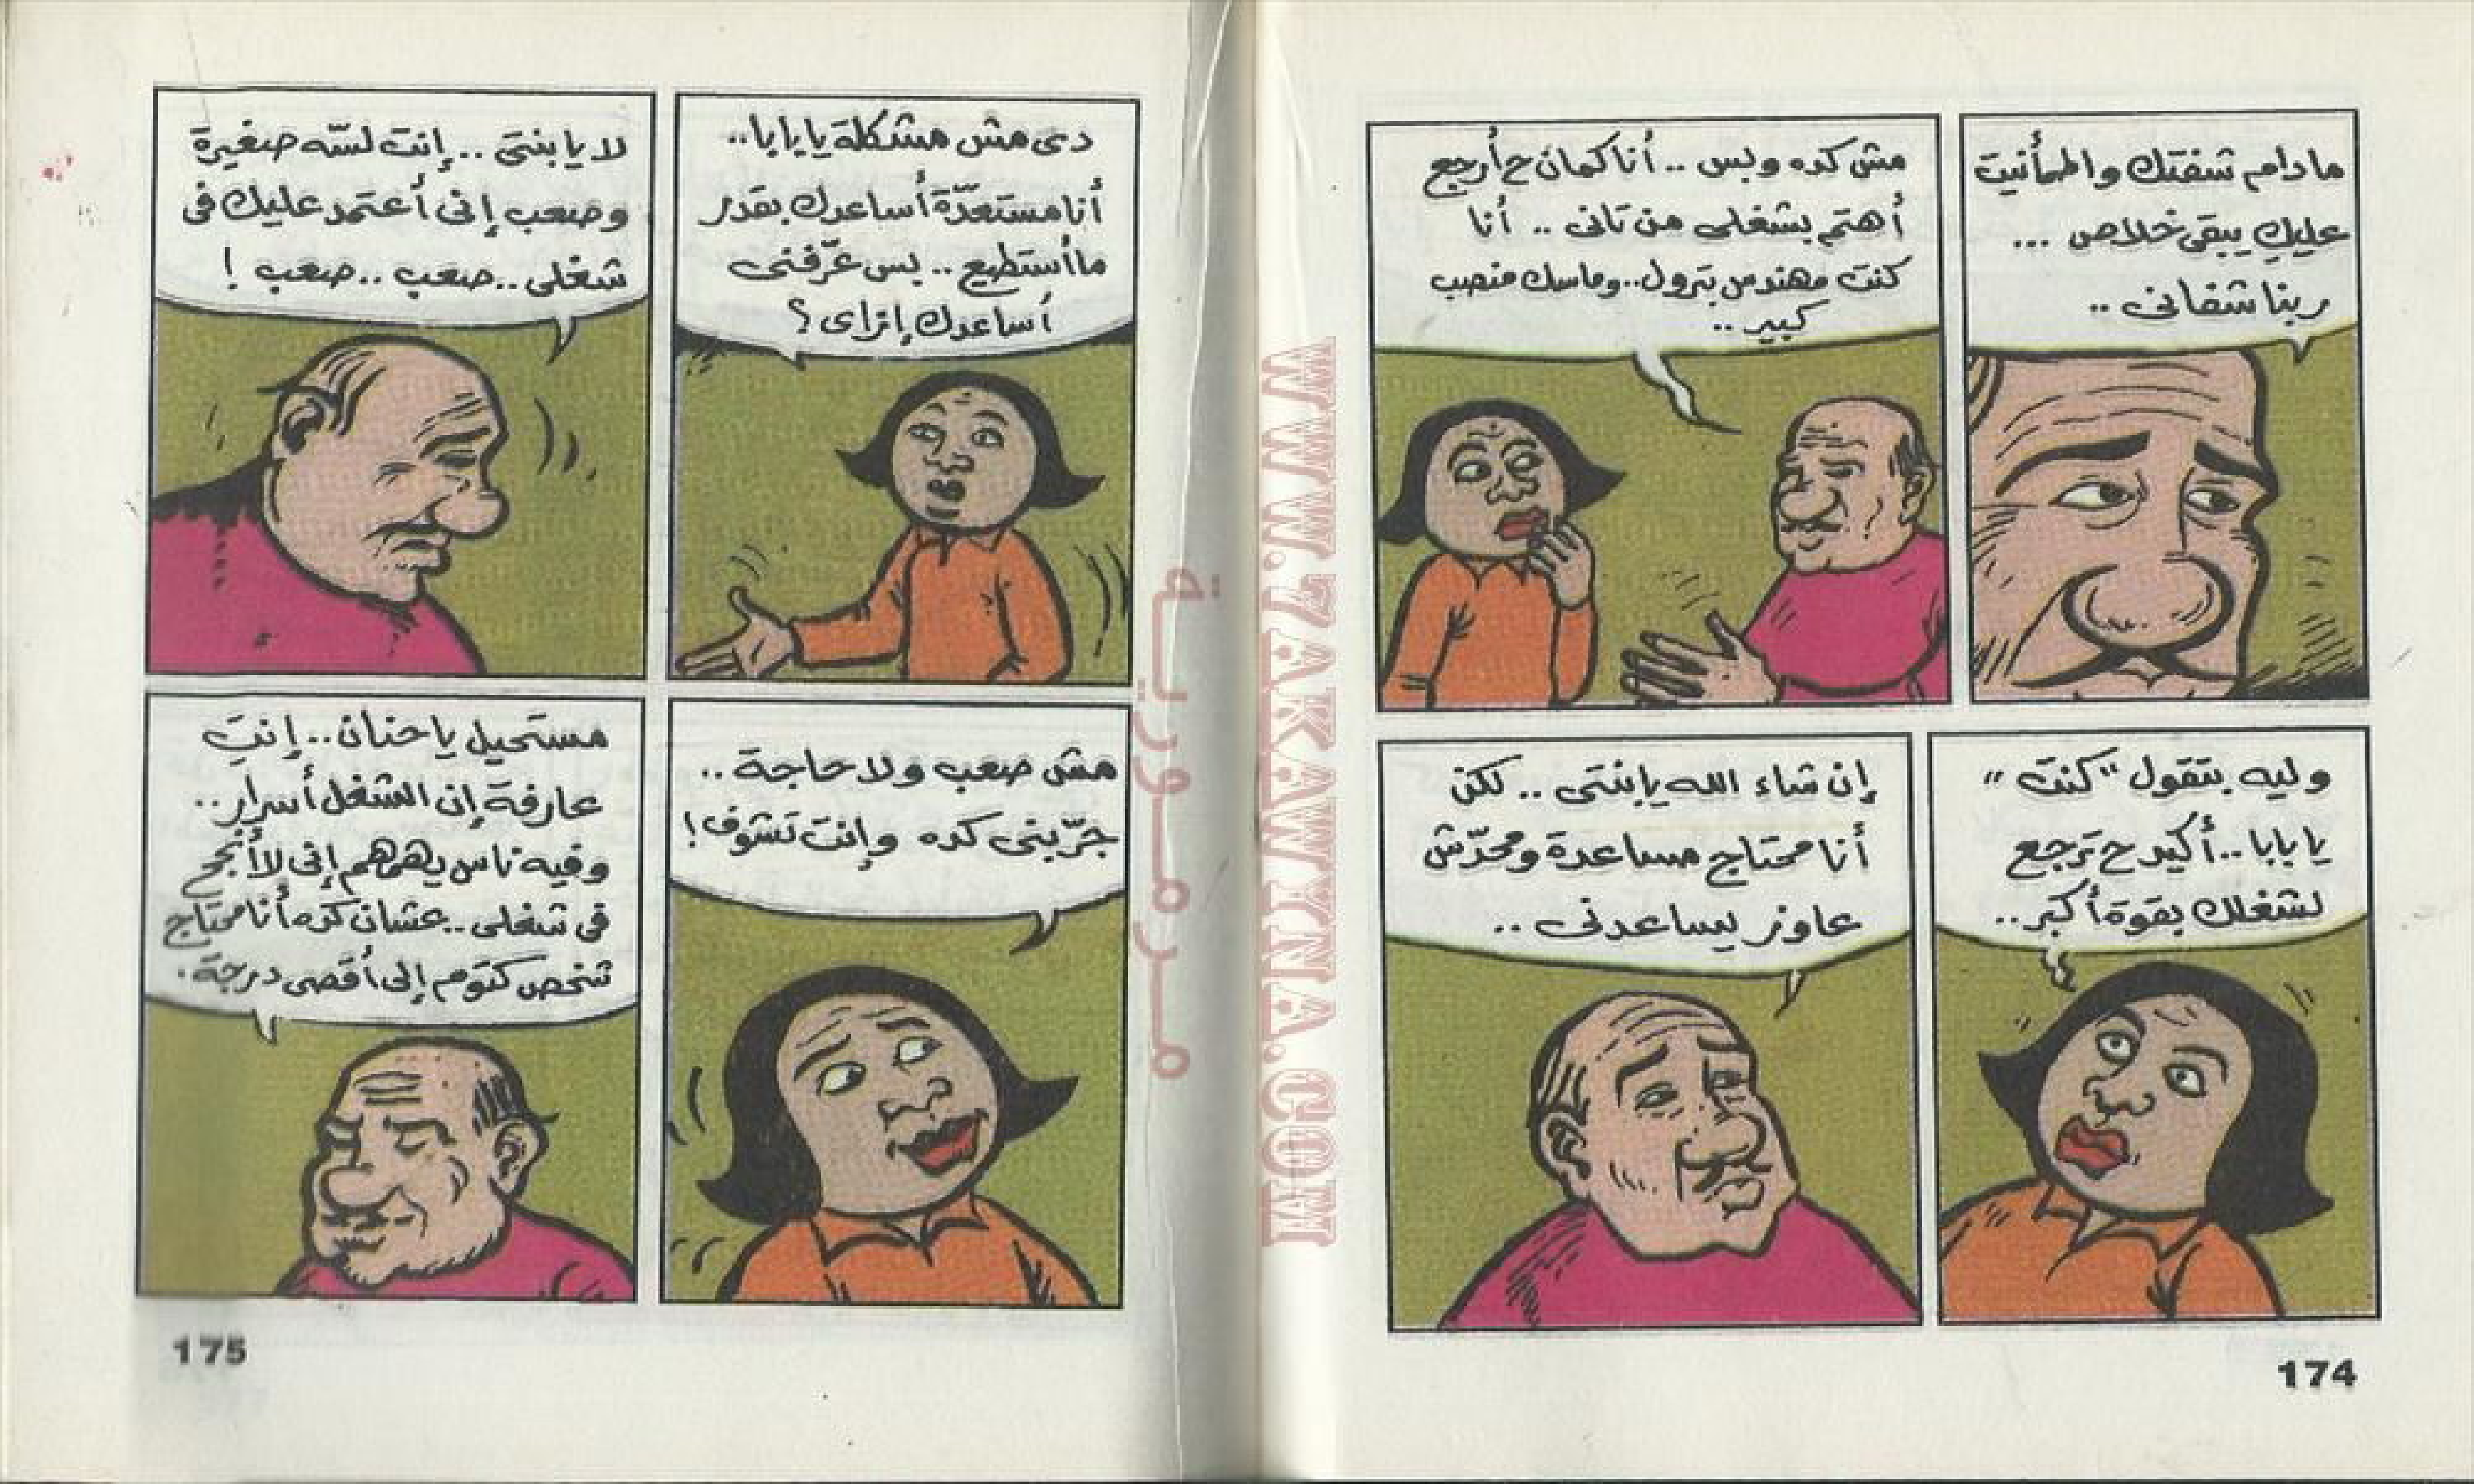 مادام شفتك واطمأنيت
عليكِ يبقى خلاص ...
ربنا شفانى ..
مش كده وبس .. أنا كمان ح أرجع
أهتم بشغلى من تانى .. أنا
كنت مهندس بترول.. وماسك منصب
كبير ..
وليه بتقول "كنت"
يا بابا .. أكيد ح ترجع
لشغلك بقوة أكبر ..
إن شاء الله يابنتى .. لكن
أنا محتاج مساعدة ومحدّش
عاوز يساعدنى ..
174
دى مش مشكلة يا بابا ..
أنا مستعدّة أساعدك بقدر
ما أستطيع .. بس عرّفنى
أساعدك إزاى ؟
لا يا بنتى .. إنت لسّه صغيرة
وصعب إنى أعتمد عليك فى
شغلى .. صعب .. صعب !
مش صعب ولا حاجة ..
جرّبنى كده وإنت تشوف !
مستحيل يا حنان .. إنتِ
عارفة إن الشغل أسرار ..
وفيه ناس يهمهم إنى لا أنجح
فى شغلى .. عشان كده أنا محتاج
شخص كتوم إلى أقصى درجة .
175
مرمورية
WWW.7AKAWINA.COM